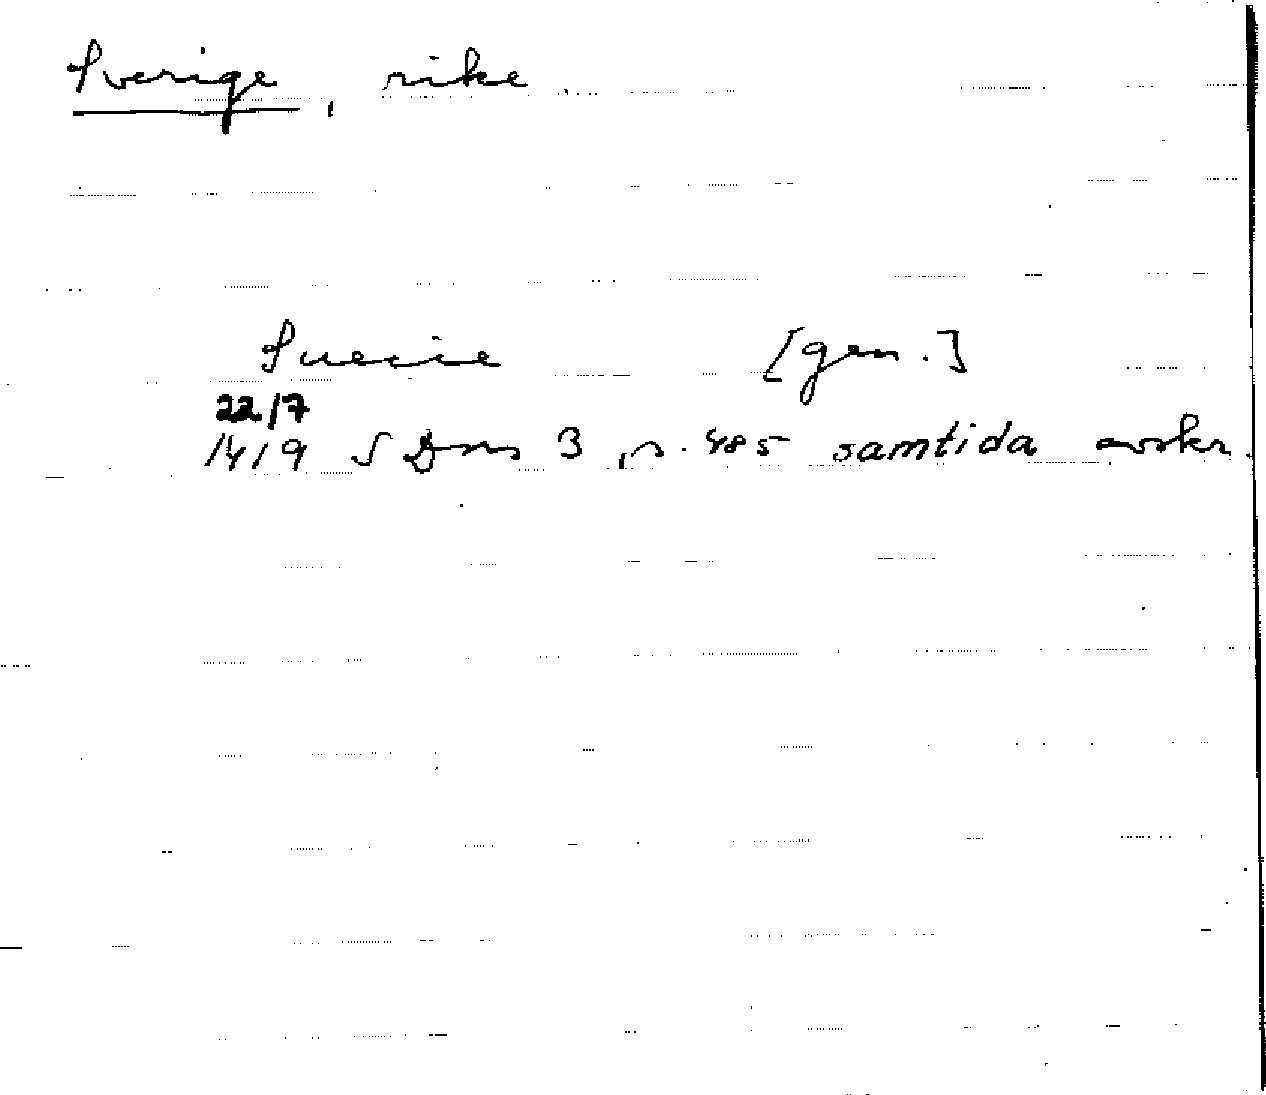 Sverige, rike.
Suecie [gen.]
22/7
1419 SDns 3, s. 485 samtida avskr.